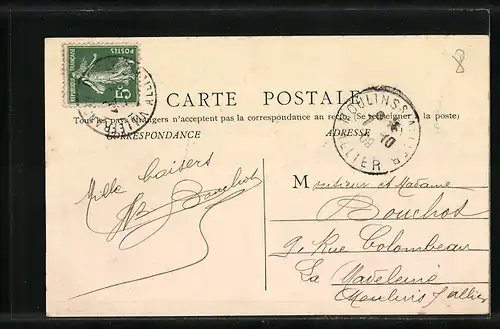 REPUBLIQUE FRANÇAISE
POSTES
5c
CARTE POSTALE
Tous les pays étrangers n'acceptent pas la correspondance au recto (Se renseigner à la poste)
CORRESPONDANCE
ADRESSE
MOULINS S ALLIER
ALLIER
8
Mille baisers
Bouchot
Monsieur et Madame
Bouchot
9, Rue Colombeau
La Madeleine
Moulins s/ allier